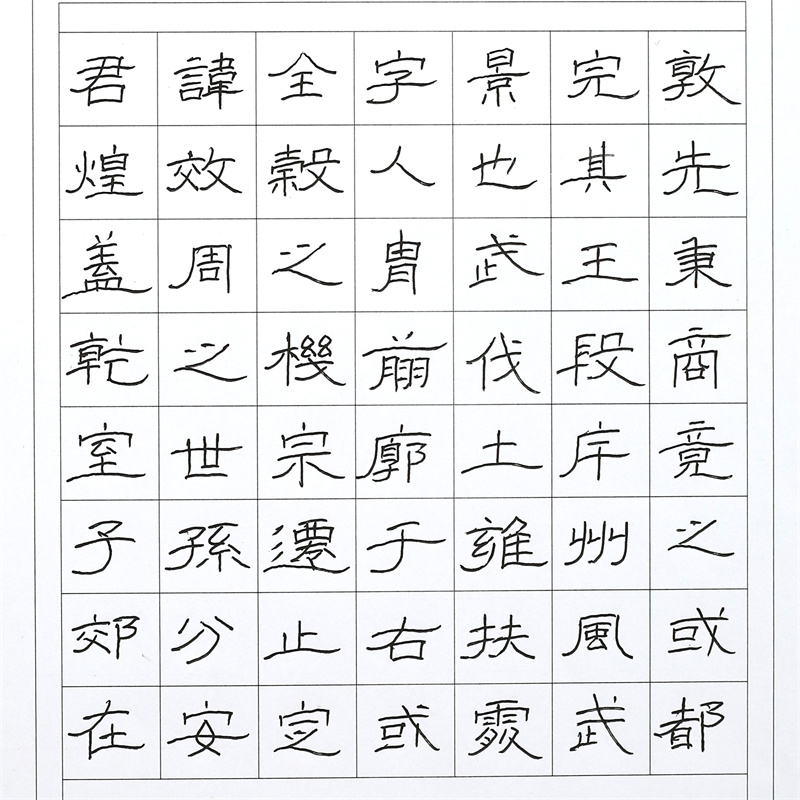 君諱全字景完敦
煌效穀人也其先
蓋周之胄武王秉
乾之機翦伐殷商
室世宗廓土斥竟
子孫遷于雍州之
郊分止右扶風或
在安定或處武都